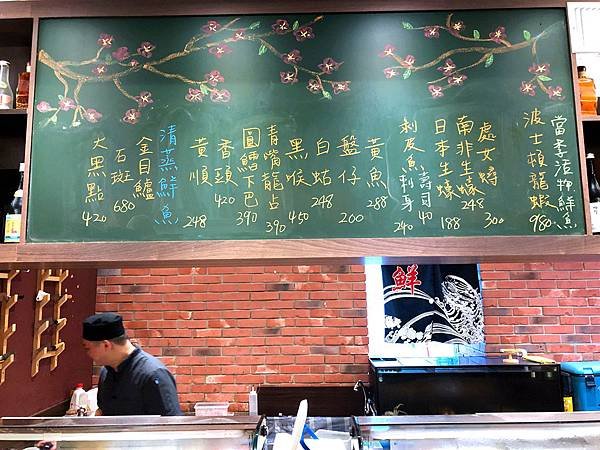 當季活抓鮮魚
波士頓龍蝦 980
處女蟳 300
南非生蠔 248
日本生蠔 188
剝皮魚 壽司 40
刺身 240
黃魚 288
盤仔 200
白鯧 248
黑喉 450
青嘴龍占 390
圓鱈下巴 390
香頭 420
黃順 248
清蒸鮮魚
金目鱸
石斑 680
大黑點 420
鮮